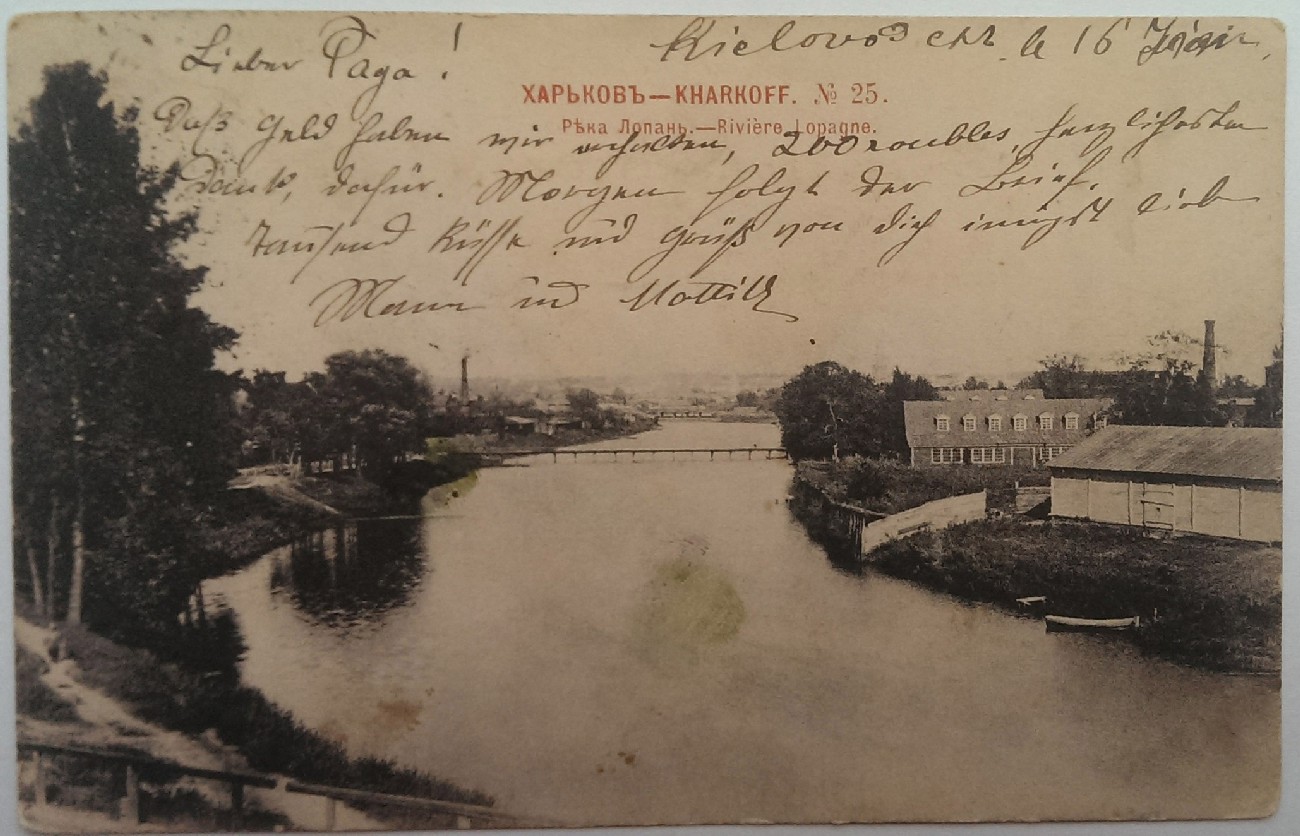 Lieber Papa! Kislovodsk. le 16 Juin,
ХАРЬКОВЪ—KHARKOFF. № 25.
Рѣка Лопань.—Rivière Lopagne.
Daß Geld haben wir erhalten, 200 roubles, herzlichsten
Dank, dafür. Morgen folgt der Brief.
Tausend Küsse und Grüß von dich innigst lieb
Mama und